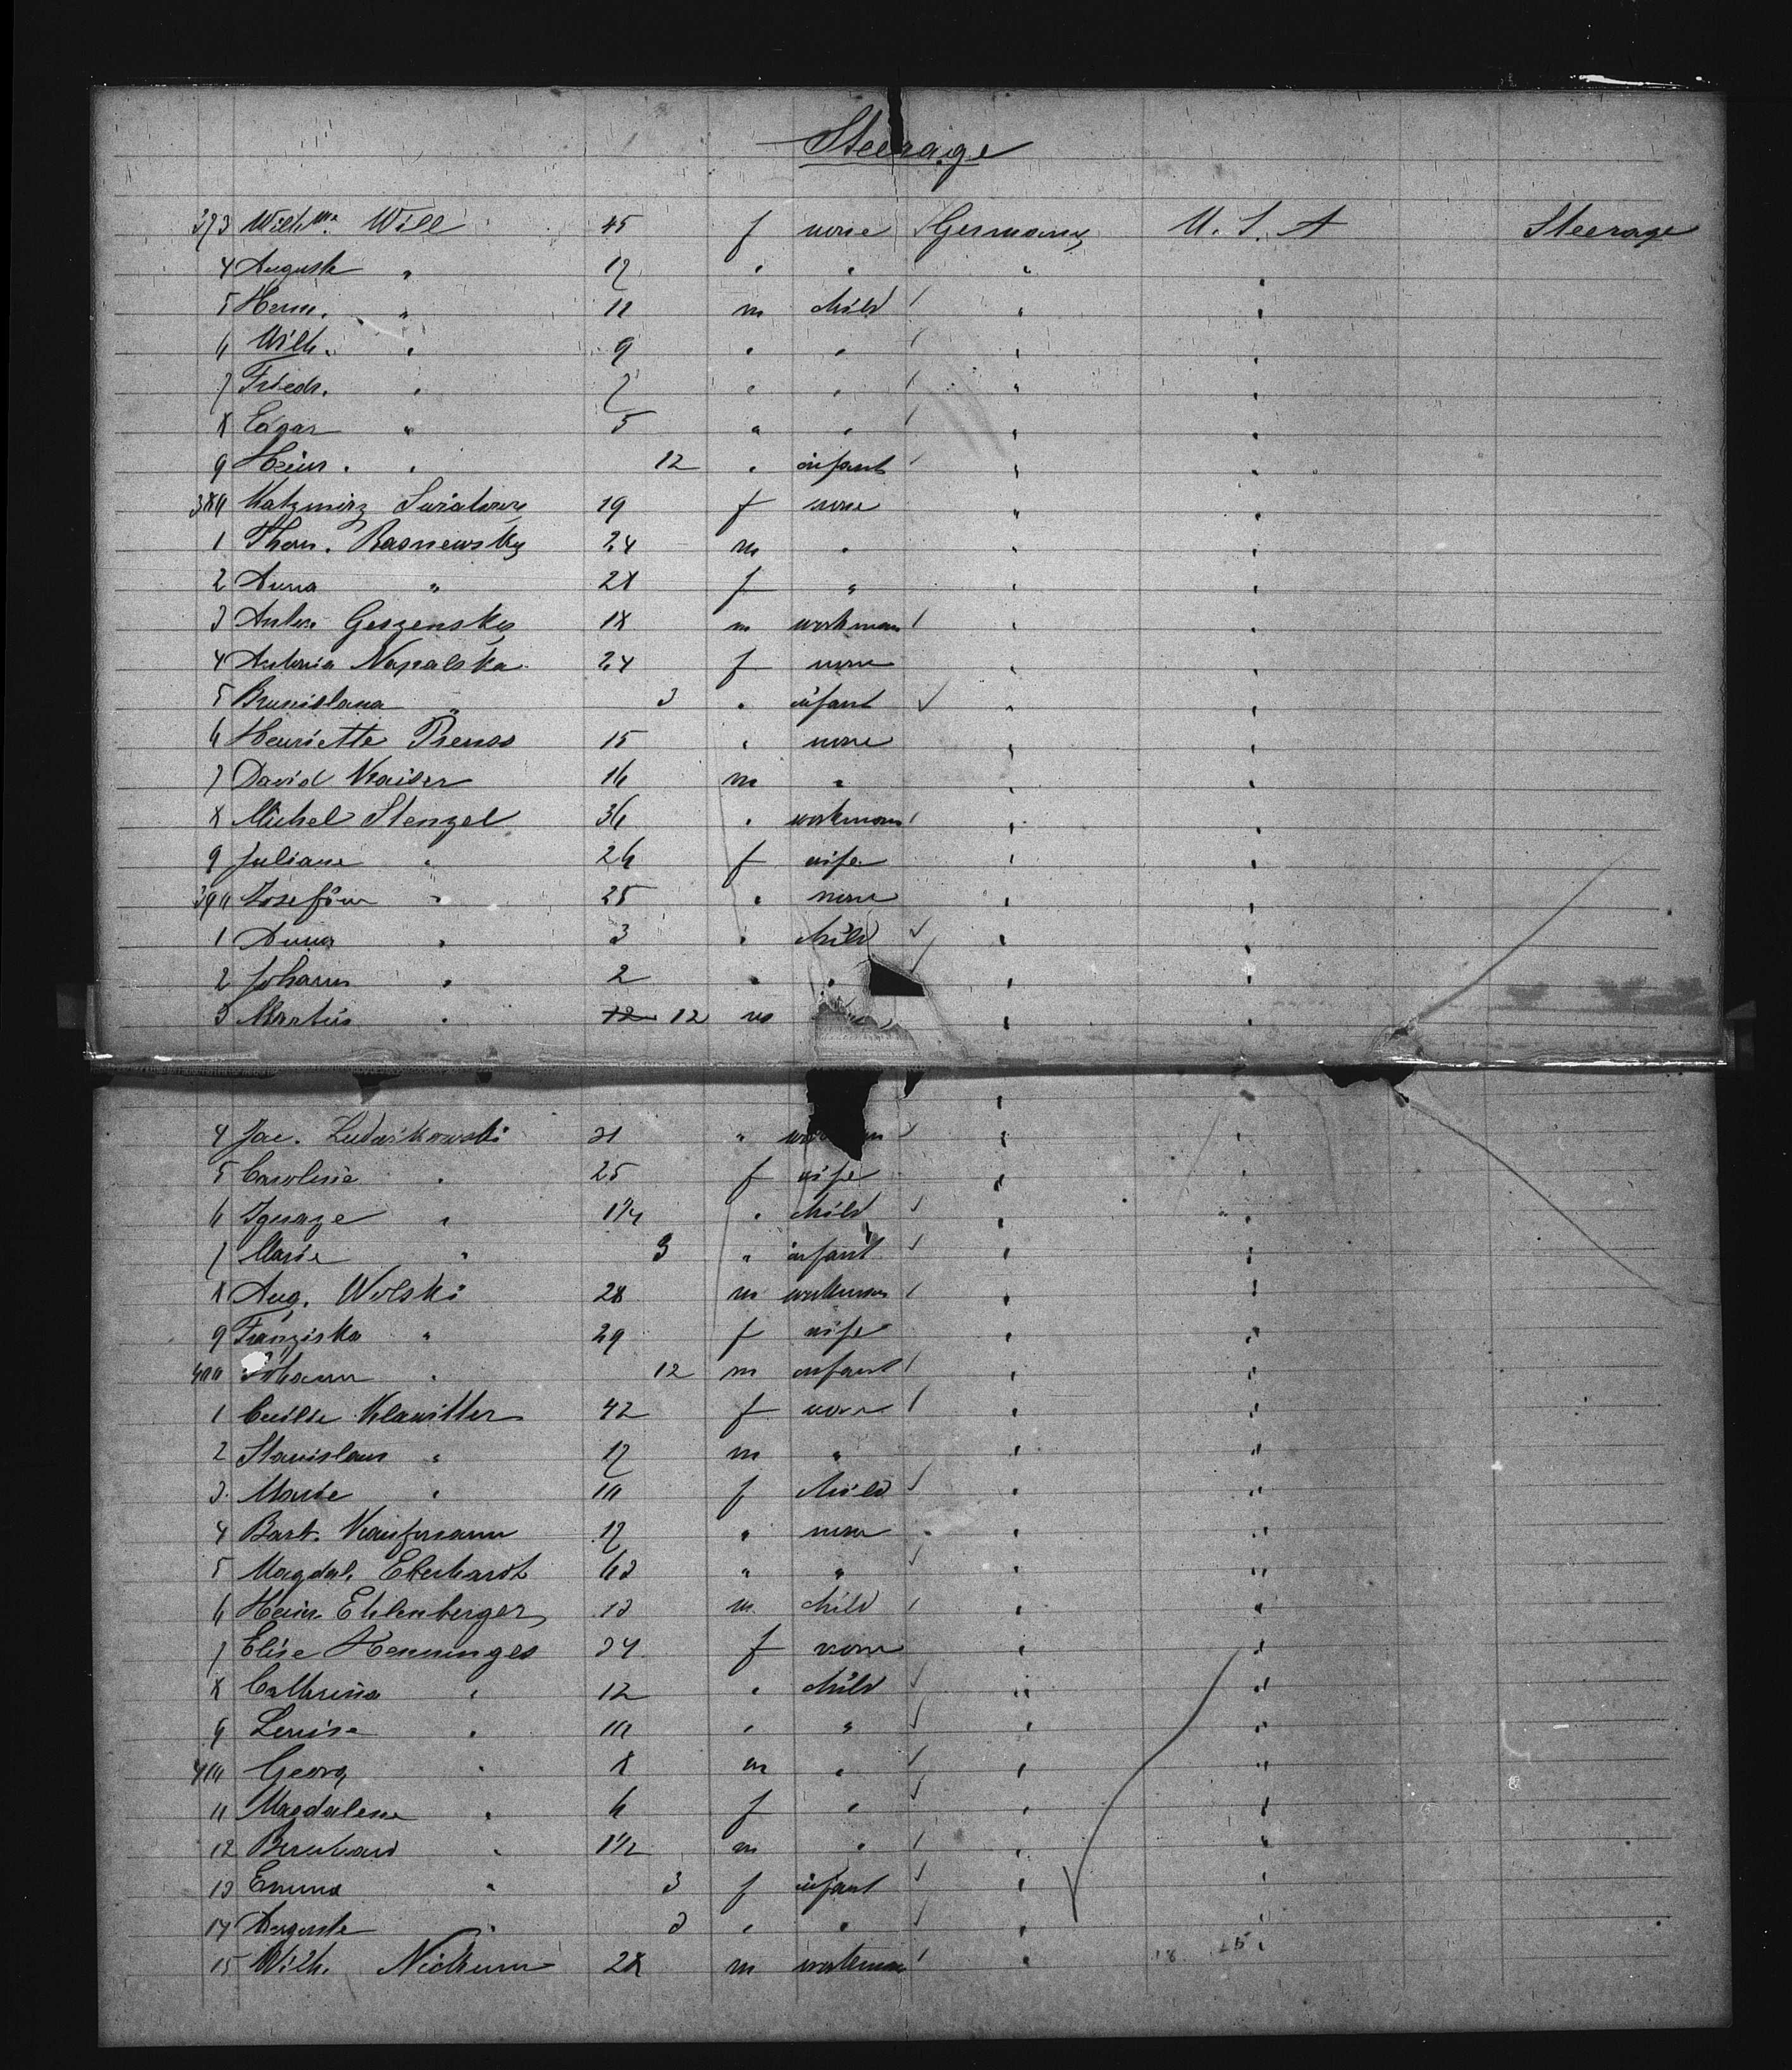 Steerage
373 Wilhme. Will 45 f none Germany U. S. A Steerage
4 Auguste " 17 " " " "
5 Herm. " 11 m child " "
6 Wilh. " 9 " " " "
7 Friedr. " 7 " " " "
8 Edgar " 5 " " " "
9 Heinr. " 12 " infant " "
380 19 f none " "
1 Thom. 24 m " " "
2 Anna " 28 f " " "
3 Anton Geszensky 18 m workman " "
4 Antonia Napalska 24 f none " "
5 Brunislana " 3 " infant " "
6 Henriette 15 " none " "
7 David Kaiser 16 m " " "
8 Michel Stenzel 36 " workman " "
9 Juliane " 26 f wife " "
390 Josefine " 25 " none " "
1 Anna " 3 " child " "
2 Johann " 2 " " " "
3 Martin " 12 12 m " "
4 Jac. 31 " " "
5 Caroline " 25 f wife " "
6 Ignaze " 1 1/4 " child " "
7 Marie " 3 " infant " "
8 Aug. Wolski 28 m workman " "
9 Franziska " 29 f wife " "
400 Johann " 12 m infant " "
1 Cecilie Klawitter 42 f none " "
2 Stanislaus " 17 m " " "
3 Marie " 10 f child " "
4 Barb. Kaufmann 17 " none " "
5 Magdal. Eberhardt 63 " " " "
6 Heinr. Ehlenberger 13 m child " "
7 Elise Henninges 34 f none " "
8 Cathrina " 12 " child " "
9 Louise " 10 " " " "
410 Georg " 8 m " " "
11 Magdalene " 6 f " " "
12 Bernhard " 1 1/2 m " " "
13 Emma " 3 f infant " "
14 Auguste " 3 " " " "
15 Wilh. 28 m workman " "